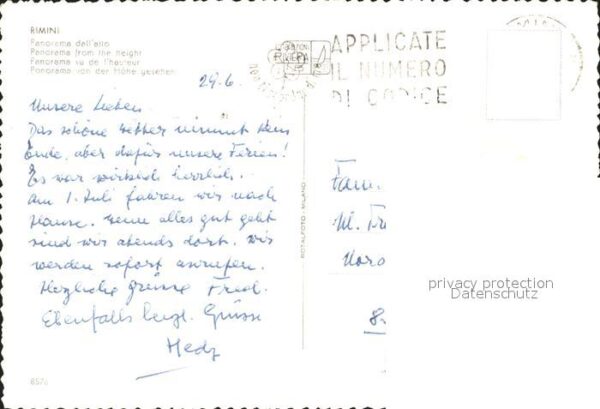 RIMINI
Panorama dall'alto
Panorama from the height
Panorama vu de l'hauteur
Panorama von der Höhe gesehen
APPLICATE
IL NUMERO
DI CODICE
29.6.
Unsere Lieben.
Das schöne Wetter nimmt kein
Ende, aber dafür unsere Ferien!
Es war wirklich herrlich.
Am 1. Juli fahren wir nach
Hause, wenn alles gut geht
sind wir abends dort. Wir
werden sofort anrufen.
Herzliche Grüsse Fredi.
Ebenfalls herzl. Grüsse
Hedy
ROTALFOTO - MILANO
Fam.
M. Fr
8576
privacy protection
Datenschutz